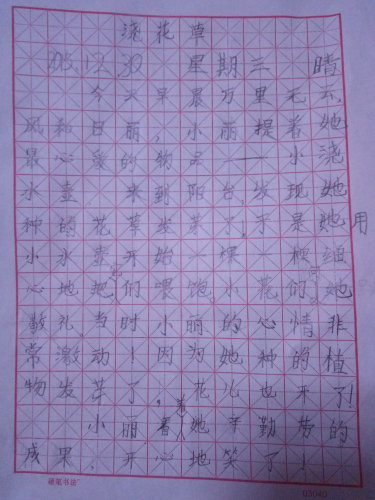 浇花草
05.12.30 星期三 晴
今天早晨万里无云,
风和日丽,小丽提着她
最心爱的物品——小浇
水壶,来到阳台,发现她
种的花草发芽了,于是她用
小水壶开始一棵一棵细
心地把它们喂饱。小花们向她
敬礼,当时小丽的心情非
常激动!因为她种的植
物发芽了,花儿也开了!
小丽看着她辛勤劳的
成果,开心地笑了!
硬笔书法